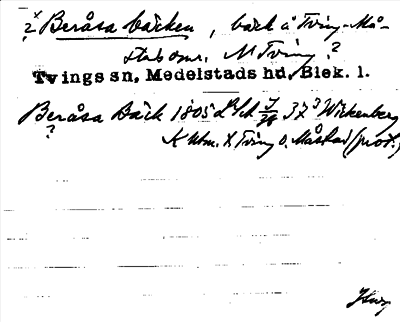 ? x Beråsa bäcken, bäck å Tving-Må-
stad omr. M Tving?
Tvings sn, Medelstads hd, Blek. l.
Beråsa Bäck 1805 37 3 Wickenberg
?
K Utm. X Tving o. Måstad (prot.)